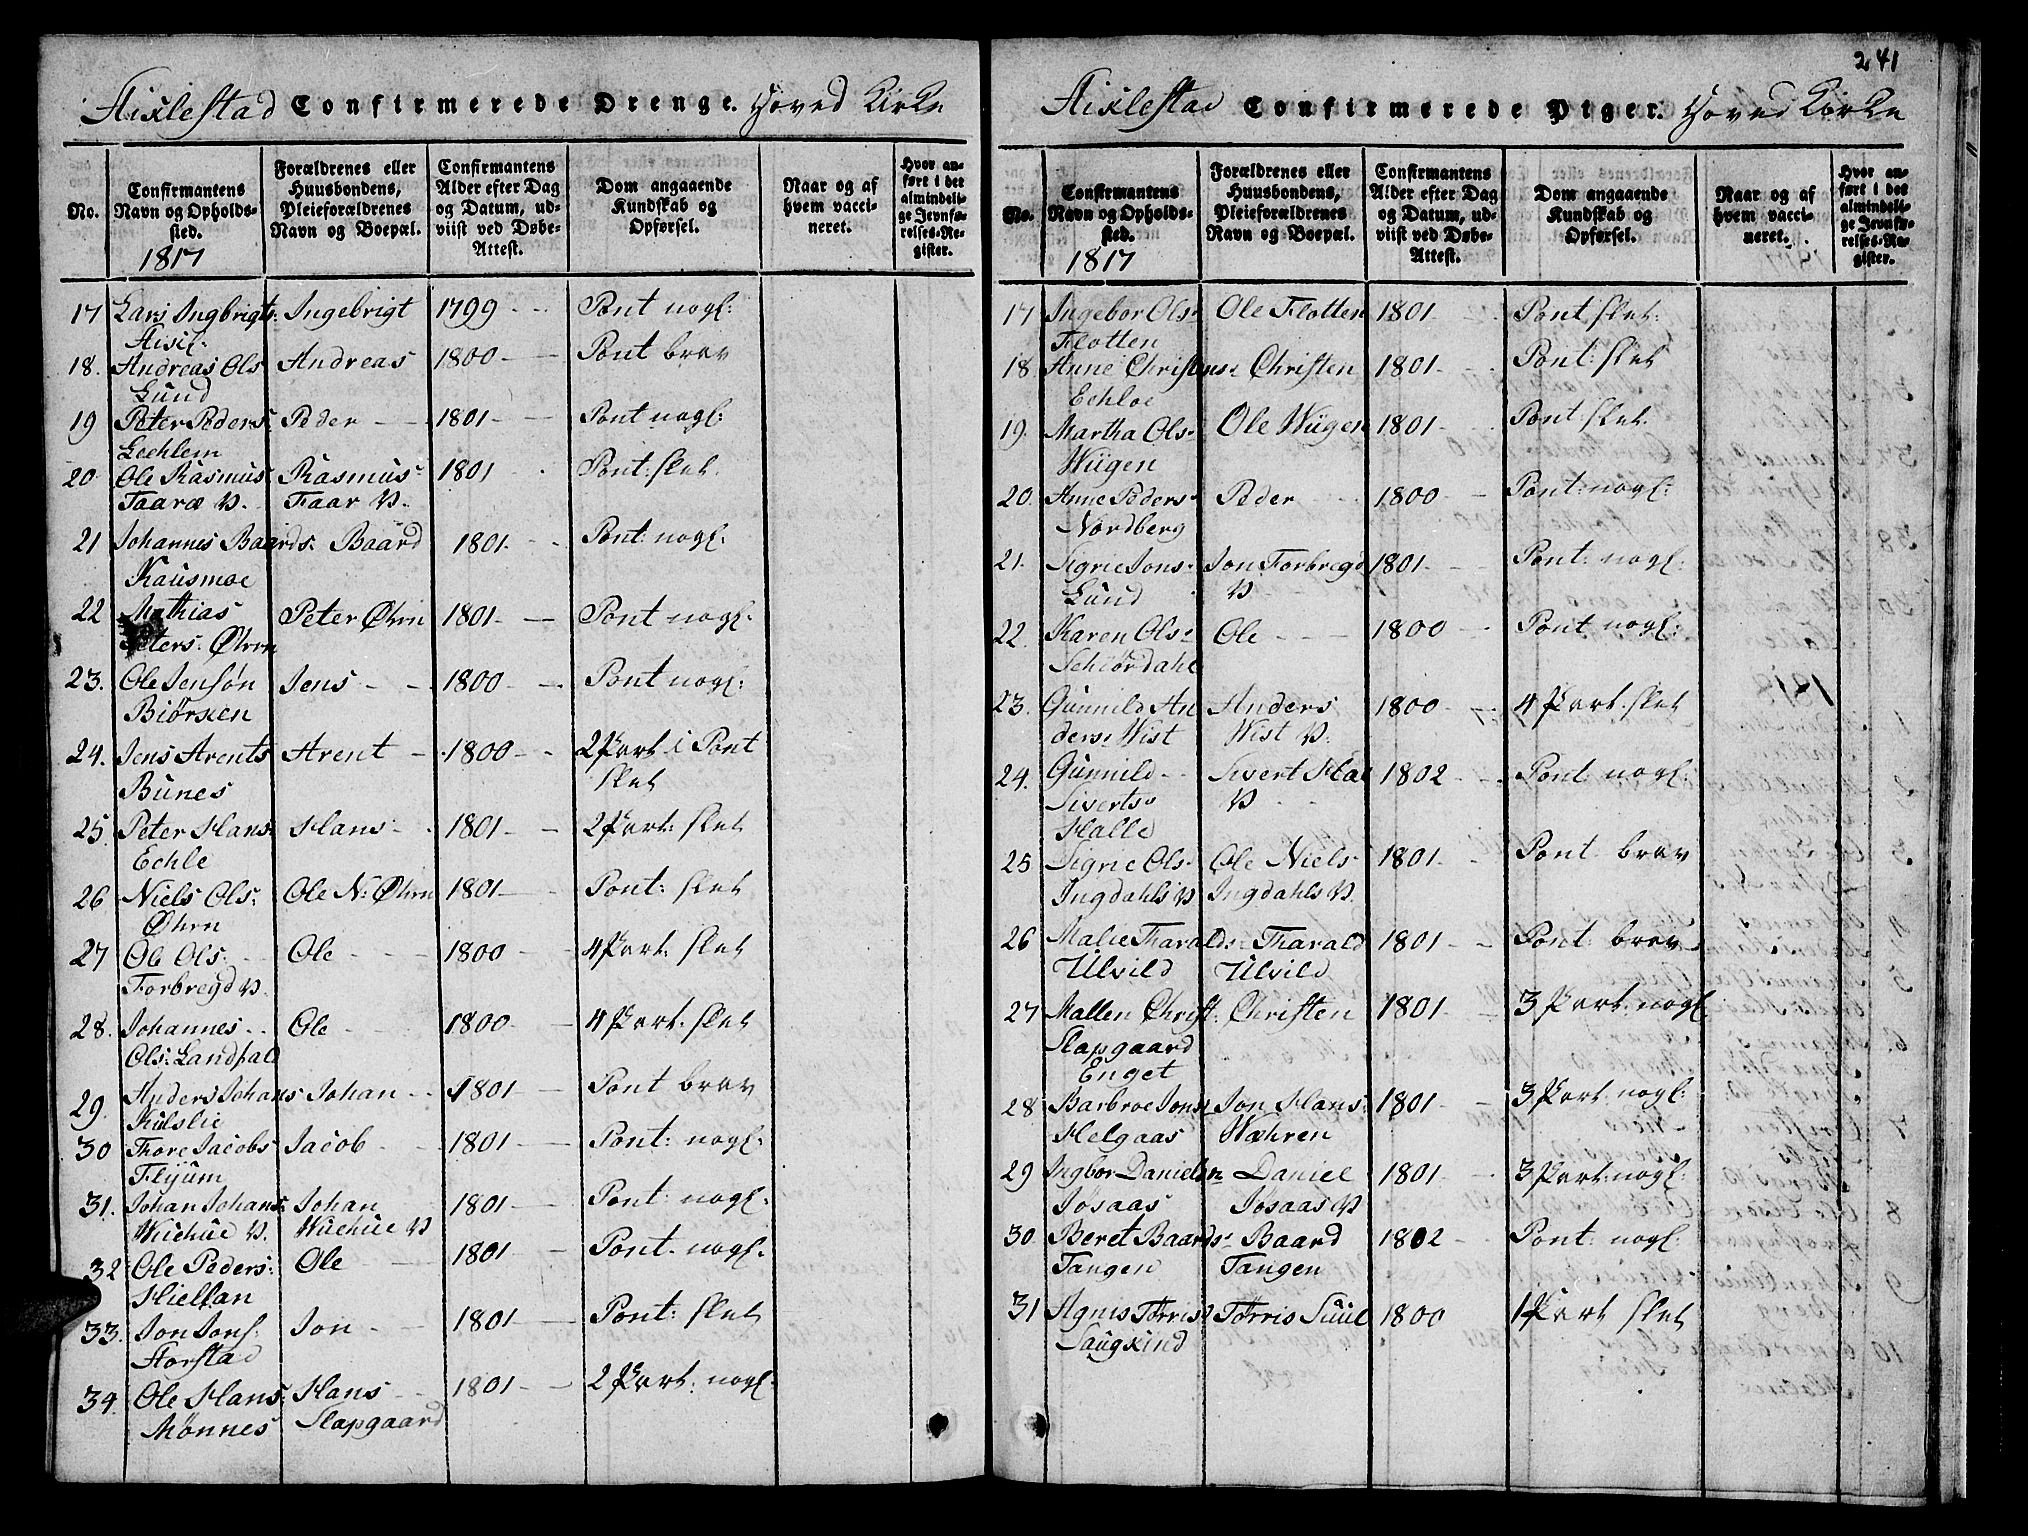 241
Aixlestad Confirmerede Drenge. Hoved Kirke
No.
Confirmantens Navn og Opholdssted.
Forældrenes eller Huusbondens, Pleieforældrenes Navn og Boepæl.
Confirmantens Alder efter Dag og Datum, udviist ved Døbe-Attest.
Dom angaaende Kundskab og Opførsel.
Naar og af hvem vaccineret.
Hvor anført i det almindelige Jevnførelses-Register.
1817
17 Lars Ingbrigts: Ingebrigt 1799 Pont nogl:
18. Andreas Ols Andreas 1800 Pont brav
Lund
19 Peter Peders: Peder 1801 Pont nogl:
Lechlem
20 Ole Rasmus Rasmus 1801 Pont: slet
Faaræ V. Faar V.
21 Johannes Baards: Baard 1801 Pont: nogl:
Kausmoe
22 Mathias Peter Øhrn 1801 Pont nogl:
Peters: Øhrn
23. Ole Jensøn Jens 1800 Pont nogl:
Biørken
24. Jens Arents Arent 1800 2 Part i Pont
Bunes slet
25 Peter Hans: Hans 1801 2 Part: slet
Echle
26 Niels Ols: Ole N: Øhrn 1801 Pont: slet
Øhrn
27 Ole Ols: Ole 1800 4 Part: slet
Forbregd V.
28. Johannes Ole 1800 4 Part: slet
Ols: Landfald
29. Anders Johans Johan 1801 Pont brav
Kulslie
30 Thore Jacobs Jacob 1801 Pont: nogl:
Flyum
31. Johan Johans: Johan 1801 Pont: nogl:
Wuchue V. Wuchue V
32 Ole Peders: Ole 1801 Pont. nogl.
Hiellan
33. Jon Jons: Jon 1801 Pont: slet
Storstad
34. Ole Hans: Hans 1801 2 Part: nogl:
Mønnes Slapgaard
Aixlestad Confirmerede Piger. Hoved Kirke
No.
Confirmantens Navn og Opholdssted.
Forældrenes eller Huusbondens, Pleieforældrenes Navn og Boepæl.
Confirmantens Alder efter Dag og Datum, udviist ved Døbe-Attest.
Dom angaaende Kundskab og Opførsel.
Naar og af hvem vaccineret.
Hvor anført i det almindelige Jevnførelses-Register.
1817
17 Ingebor Ols- Ole Flotten 1801 Pont slet:
Flotten
18 Anne Christens: Christen 1801 Pont: slet
Echloe
19. Martha Ols- Ole Wugen 1801 Pont slet.
Wugen
20. Anne Peders- Peder 1800 Pont: nogl:
Nordberg
21. Sigrie Jons- Jon Forbregd 1801 Pont: nogl:
Lund V
22. Karen Ols: Ole 1800 Pont nogl:
Schiørdahl
23. Gunnild An Anders 1800 4 Part. slet
ders: Wist Wist V.
24. Gunnild Sivert Hal 1802 Pont: nogl:
Siverts V
Halle
25 Sigrie Ols- Ole Niels 1801 Pont brav
Ingdahls V Ingdahls V.
26 Malie Tharalds: Tharald 1801 Pont: brav
Ulvild Ulvild
27 Mallen Christ: Christen 1801 3 Part: nogl.
Slapgaard
Enget
28 Barbroe Jons: Jon Hans: 1801 3 Part. nogl:
Helgaas Wæhren
29 Ingbor Danielsn Daniel 1801 3 Part: nogl:
Jøsaas Jøsaas V
30 Beret Baards: Baard 1802 Pont: nogl:
Tangen Tangen
31 Agnis Tørris Tørris Suul 1800 1 Part slet
Saugkind